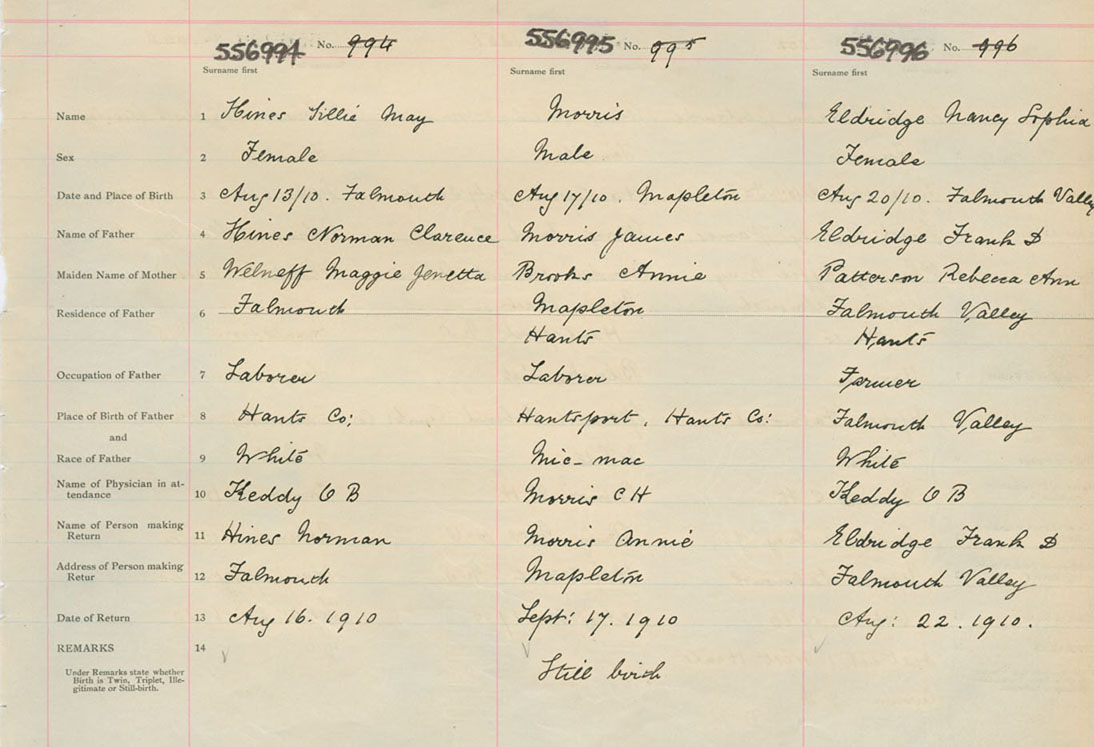 556994 No. 994 556995 No. 995 556996 No. 996
Surname first Surname first Surname first
Name 1 Hines Lillie May Morris Eldridge Nancy Sophia
Sex 2 Female Male Female
Date and Place of Birth 3 Aug 13/10. Falmouth Aug 17/10. Mapleton Aug 20/10. Falmouth Valley
Name of Father 4 Hines Norman Clarence Morris James Eldridge Frank D
Maiden Name of Mother 5 Welneff Maggie Jenetta Brooks Annie Patterson Rebecca Ann
Residence of Father 6 Falmouth Mapleton Falmouth Valley
Hants Hants
Occupation of Father 7 Laborer Laborer Farmer
Place of Birth of Father 8 Hants Co: Hantsport, Hants Co: Falmouth Valley
and
Race of Father 9 White Mic-mac White
Name of Physician in at-
tendance 10 Keddy O B Morris C H Keddy O B
Name of Person making
Return 11 Hines Norman Morris Annie Eldridge Frank D
Address of Person making
Retur 12 Falmouth Mapleton Falmouth Valley
Date of Return 13 Aug 16. 1910 Sept: 17. 1910 Aug: 22. 1910.
REMARKS 14
Under Remarks state whether
Birth is Twin, Triplet, Ille-
gitimate or Still-birth.
Still birth